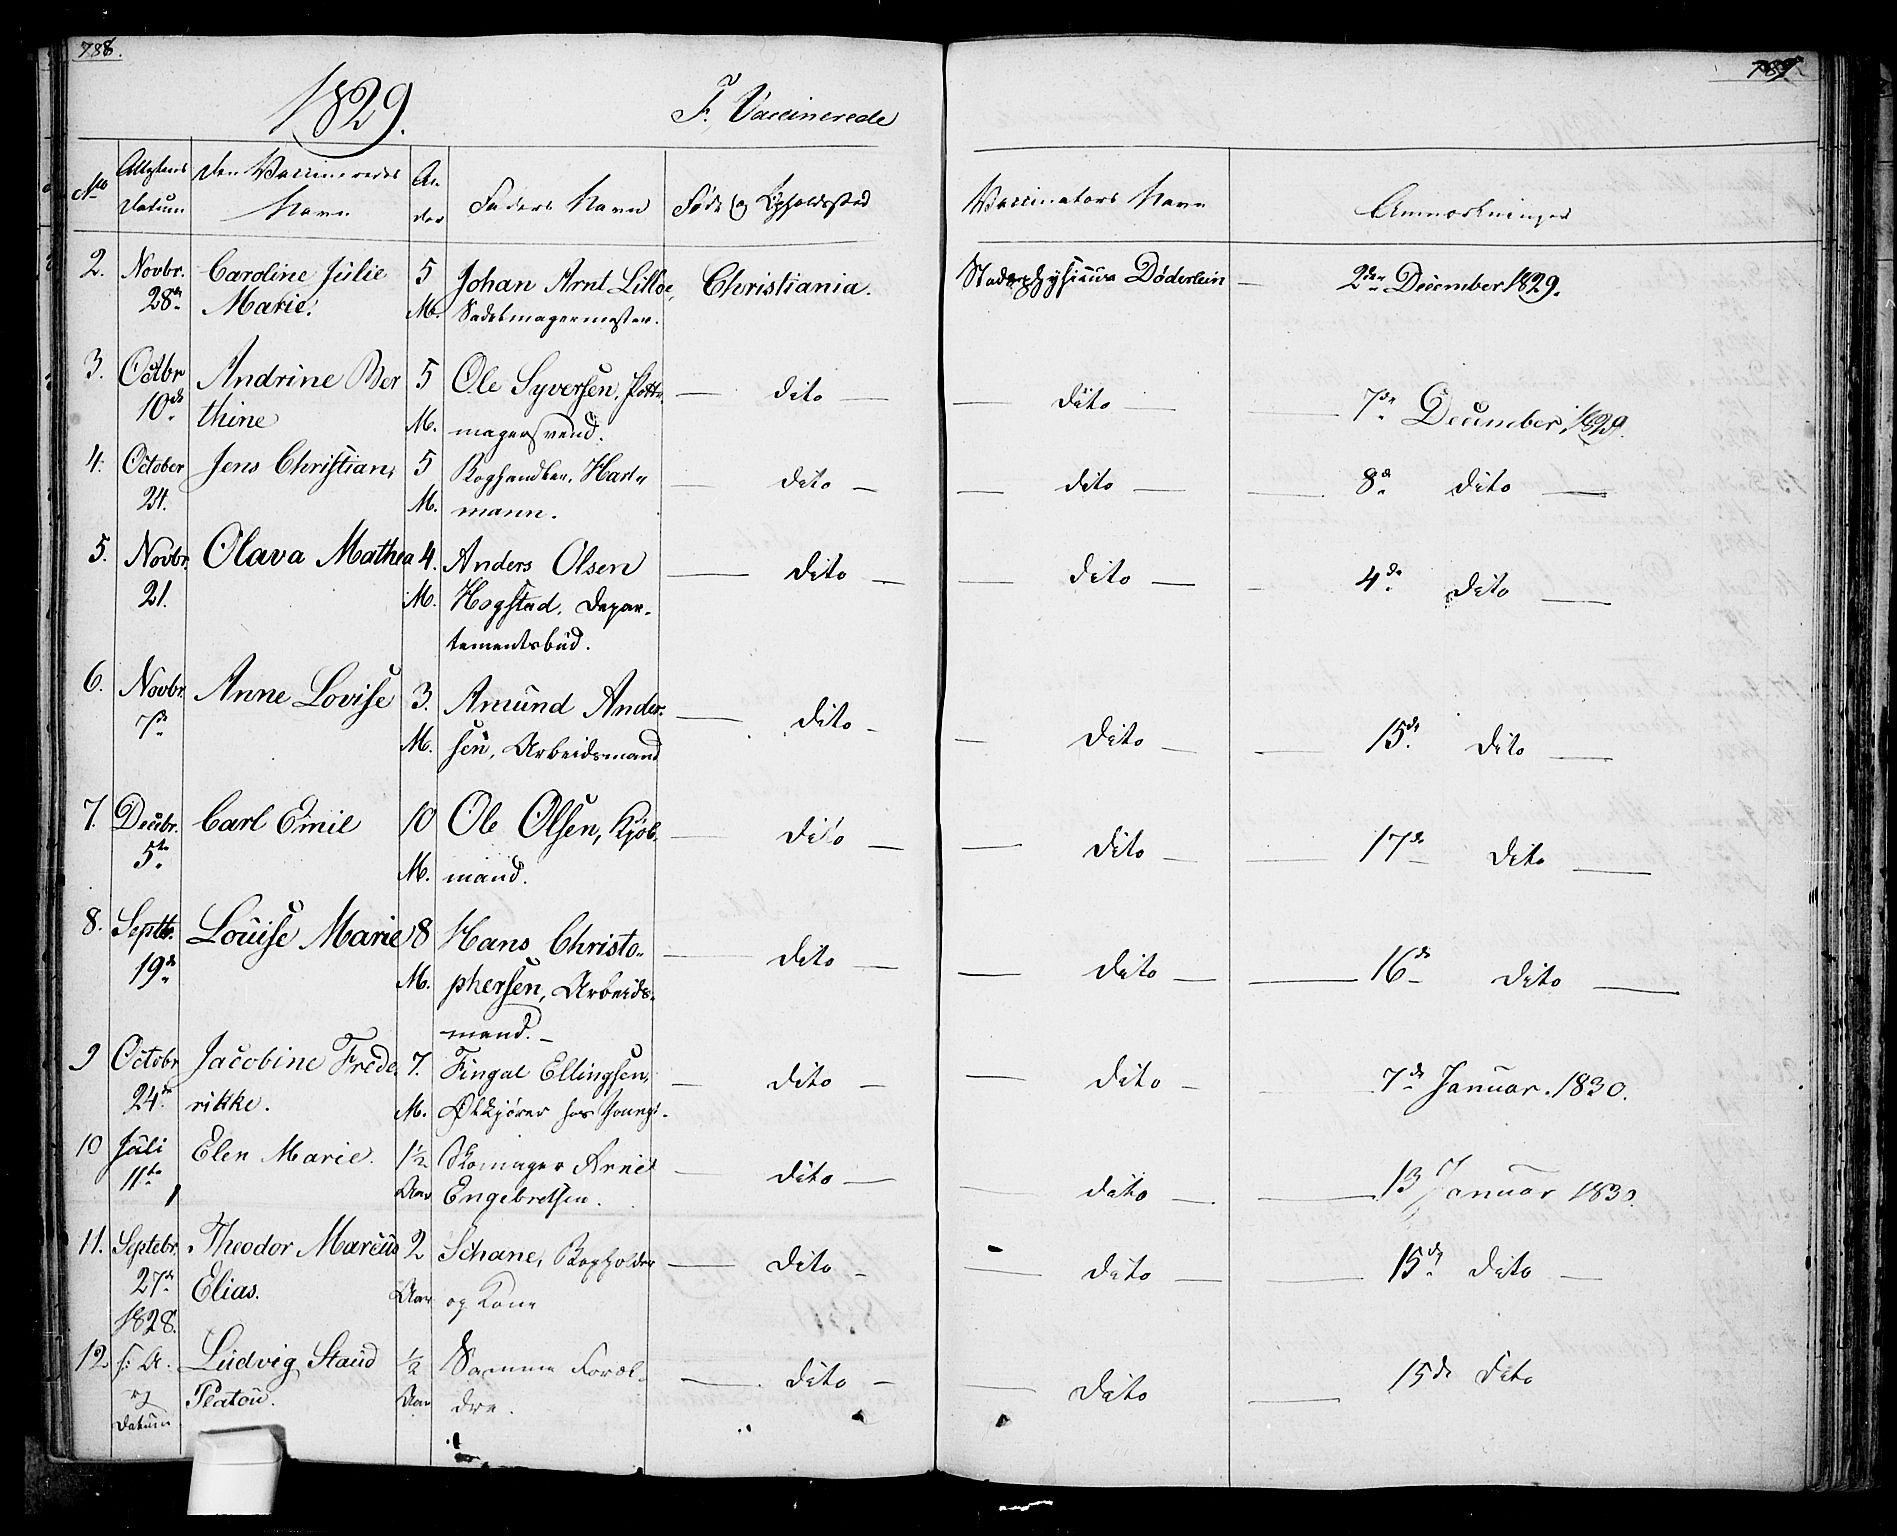 788.
1829.
F. Vaccinerede
No
Attestens Datum
Den Vaccineredes Navn
Alder
Faders Navn
Føde og Opholdssted
2. Novbr. 28de Caroline Julie Marie. 5 M. Johan Arnt Lilloe, Sadelmagermester. Christiania.
3. Octbr 10de Andrine Berthine 5 M. Ole Syversen, Pottemagersvend. — Dito —
4. October 24. Jens Christian, 5 M. Boghandler, Hartmann. — Dito —
5. Novbr. 21. Olava Mathea 4. M. Anders Olsen Hogstad, Departementsbud. — Dito —
6. Novbr. 7de Anne Lovise 3. M. Amund Andersen, Arbeidsmand — Dito —
7. Decbr. 5te Carl Emil 10 M. Ole Olsen, Kjøbmand. — Dito —
8. Septbr. 19de Louise Marie 8 M. Hans Christophersen, Arbeidsmand. — Dito —
9 Octobr 24de Jacobine Frederikke. 7. M. Fingal Ellingsen, Ølkjører hos Youngs. — Dito —
10 Juli 11te Elen Marie. 1½ Aar Skomager Arne Engebretsen. — Dito —
11. Septebr. 27de 1828. Theodor Marcus Elias. 2 Aar Schane, Bogholder og Kone — Dito —
12. s: A. og Datum Ludvig Staud Platou. ½ Aar Samme Forældre. — Dito —
789
Vaccinators Navn
Anmærkninger
Stadsphysicus Døderlein — 2den December 1829.
— Dito — 7de December, 1829.
— Dito — 8de Dito —
— Dito — 4de Dito —
— Dito — 15de Dito —
— Dito — 17de Dito —
— Dito — 16de Dito —
— Dito — 7de Januar. 1830.
— Dito — 13 Januar 1830.
— Dito — 15de Dito —
— Dito — 15de Dito